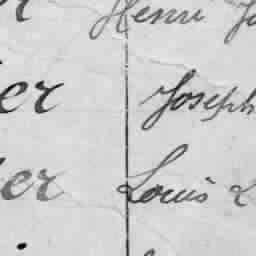 Henri
er Joseph
er Louis L